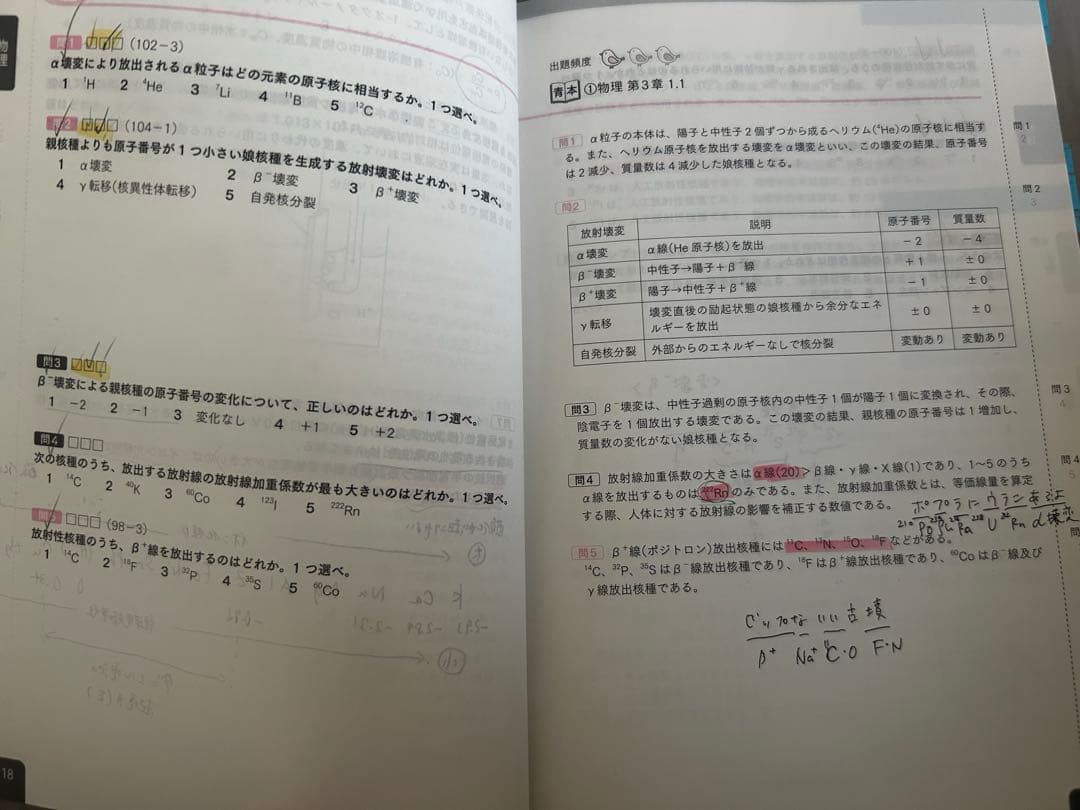 物理
問1 □□□ (102-3)
α壊変により放出されるα粒子はどの元素の原子核に相当するか。1つ選べ。
1 ¹H 2 ⁴He 3 ⁷Li 4 ¹¹B 5 ¹²C
問2 □□□ (104-1)
親核種よりも原子番号が1つ小さい娘核種を生成する放射壊変はどれか。1つ選べ。
1 α壊変 2 β⁻壊変 3 β⁺壊変
4 γ転移(核異性体転移) 5 自発核分裂
問3 □□□
β⁻壊変による親核種の原子番号の変化について、正しいのはどれか。1つ選べ。
1 -2 2 -1 3 変化なし 4 +1 5 +2
問4 □□□
次の核種のうち、放出する放射線の放射線加重係数が最も大きいのはどれか。1つ選べ。
1 ¹⁴C 2 ⁴⁰K 3 ⁶⁰Co 4 ¹²³I 5 ²²²Rn
□□□ (98-3)
放射性核種のうち、β⁺線を放出するのはどれか。1つ選べ。
1 ¹⁴C 2 ¹⁸F 3 ³²P 4 ³⁵S 5 ⁶⁰Co
18
出題頻度
青本 ①物理 第3章 1.1
問1 α粒子の本体は、陽子と中性子2個ずつから成るヘリウム(⁴He)の原子核に相当す
る。また、ヘリウム原子核を放出する壊変をα壊変といい、この壊変の結果、原子番号
は2減少、質量数は4減少した娘核種となる。
問2
放射壊変 説明 原子番号 質量数
α壊変 α線(He原子核)を放出 -2 -4
β⁻壊変 中性子→陽子+β⁻線 +1 ±0
β⁺壊変 陽子→中性子+β⁺線 -1 ±0
γ転移 壊変直後の励起状態の娘核種から余分なエネ
ルギーを放出 ±0 ±0
自発核分裂 外部からのエネルギーなしで核分裂 変動あり 変動あり
問3 β⁻壊変は、中性子過剰の原子核内の中性子1個が陽子1個に変換され、その際、
陰電子を1個放出する壊変である。この壊変の結果、親核種の原子番号は1増加し、
質量数の変化がない娘核種となる。
問4 放射線加重係数の大きさはα線(20)>β線・γ線・X線(1)であり、1~5のうち
α線を放出するものは²²²Rnのみである。また、放射線加重係数とは、等価線量を算定
する際、人体に対する放射線の影響を補正する数値である。
ポプラにウラン
Po Pu Ra U Rn α壊変
問5 β⁺線(ポジトロン)放出核種には¹¹C、¹³N、¹⁵O、¹⁸Fなどがある。
¹⁴C、³²P、³⁵Sはβ⁻線放出核種であり、¹⁸Fはβ⁺線放出核種であり、⁶⁰Coはβ⁻線及び
γ線放出核種である。
な いい古墳
β⁺ Na⁺ ¹¹C・O F・N
問1
2
問2
3
問3
4
問4
5
問